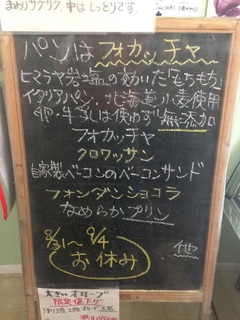 まわりサクサク、中はしっとりです。
パンは フォカッチャ
ヒマラヤ岩塩の効いた「もちもち」
イタリアパン、北海道小麦使用
卵・牛乳は使わず 無添加
フォカッチャ
クロワッサン
自家製ベーコンのベーコンサンド
フォンダンショコラ
なめらかプリン
8/31〜9/4
お休み
他
大きいオリーブ
限定値下げ